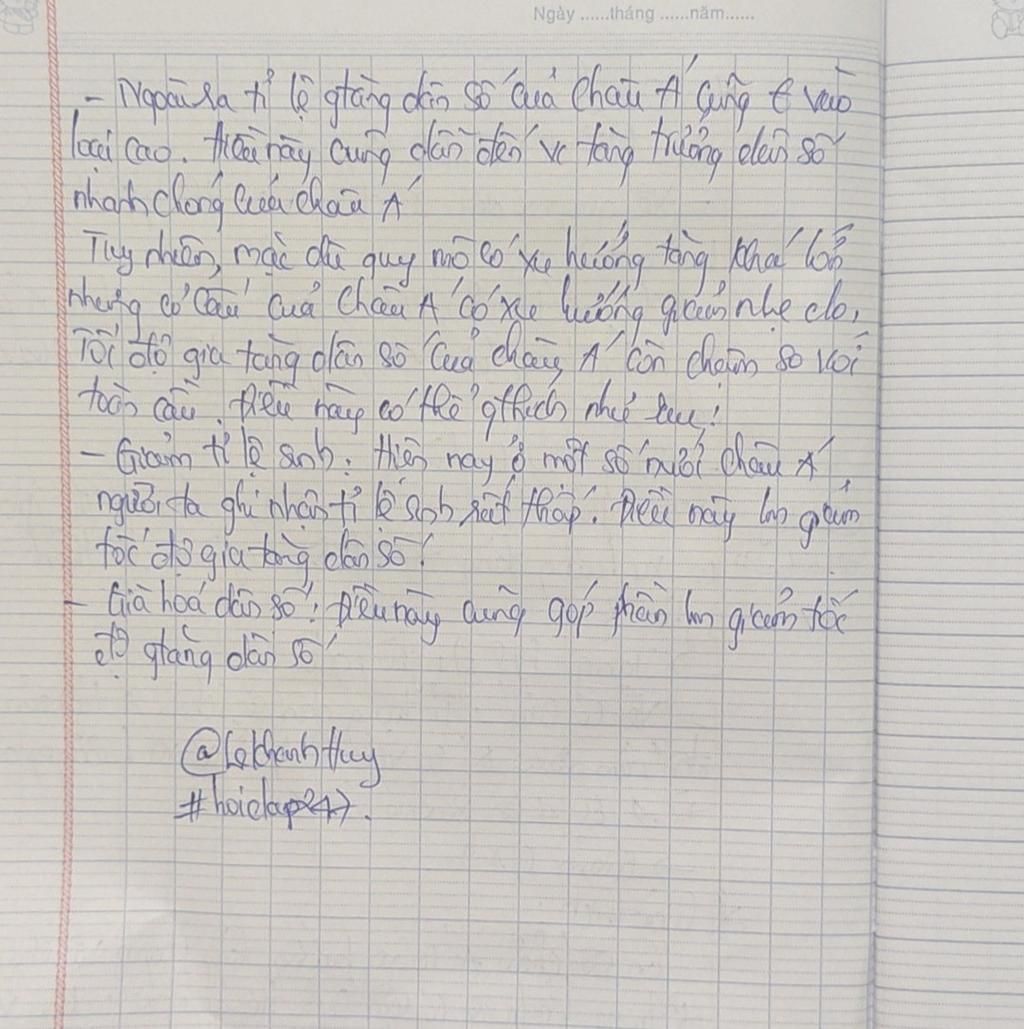 Ngày ......tháng ......năm......
- Ngoài ra tỉ lệ gtăng dân số của Châu Á cũng t vào
loại cao. Điều này cũng dẫn đến vc tăng trưởng dân số
nhanh chóng của châu Á
Tuy nhiên, mặc dù quy mô có xu hướng tăng khá lớn
nhưng cơ cấu của Châu Á có xu hướng giảm nhẹ do,
Tốc độ gia tăng dân số của châu Á còn chậm so với
toàn cầu. Điều này có thể gthích như sau:
- Giảm tỉ lệ sinh: Hiện nay ở một số nước Châu Á
người ta ghi nhận tỉ lệ sinh rất thấp. Điều này lm giảm
tốc độ gia tăng dân số.
- Già hoá dân số: Điều này cũng góp phần lm giảm tốc
độ gtăng dân số
@LeKhanhHuy
#hoidap247.